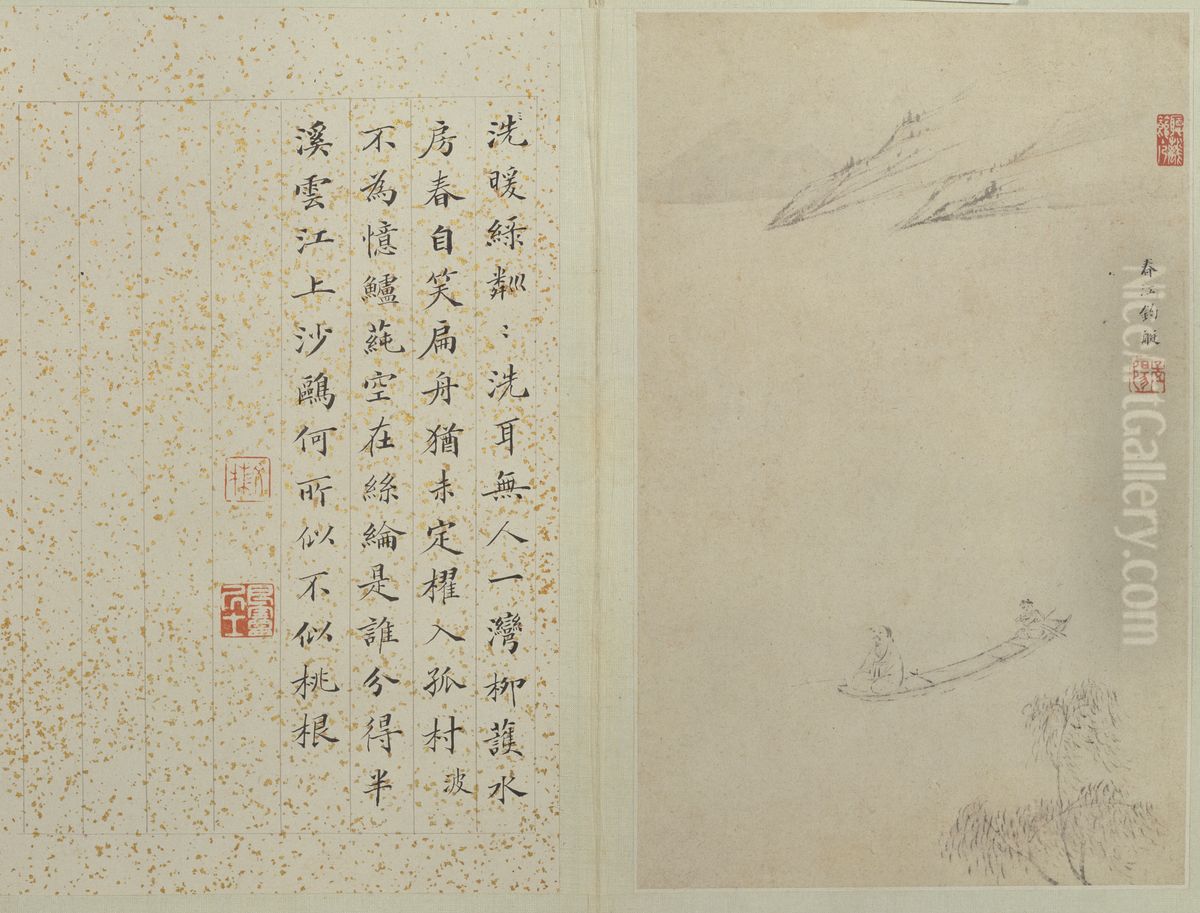 春江釣艇
洗暖綠粼〻洗耳無人一灣柳護水
房春自笑扁舟猶未定櫂入孤村波
不為憶鱸蒓空在絲綸是誰分得半
溪雲江上沙鷗何所似不似桃根
NiceArtGallery.com